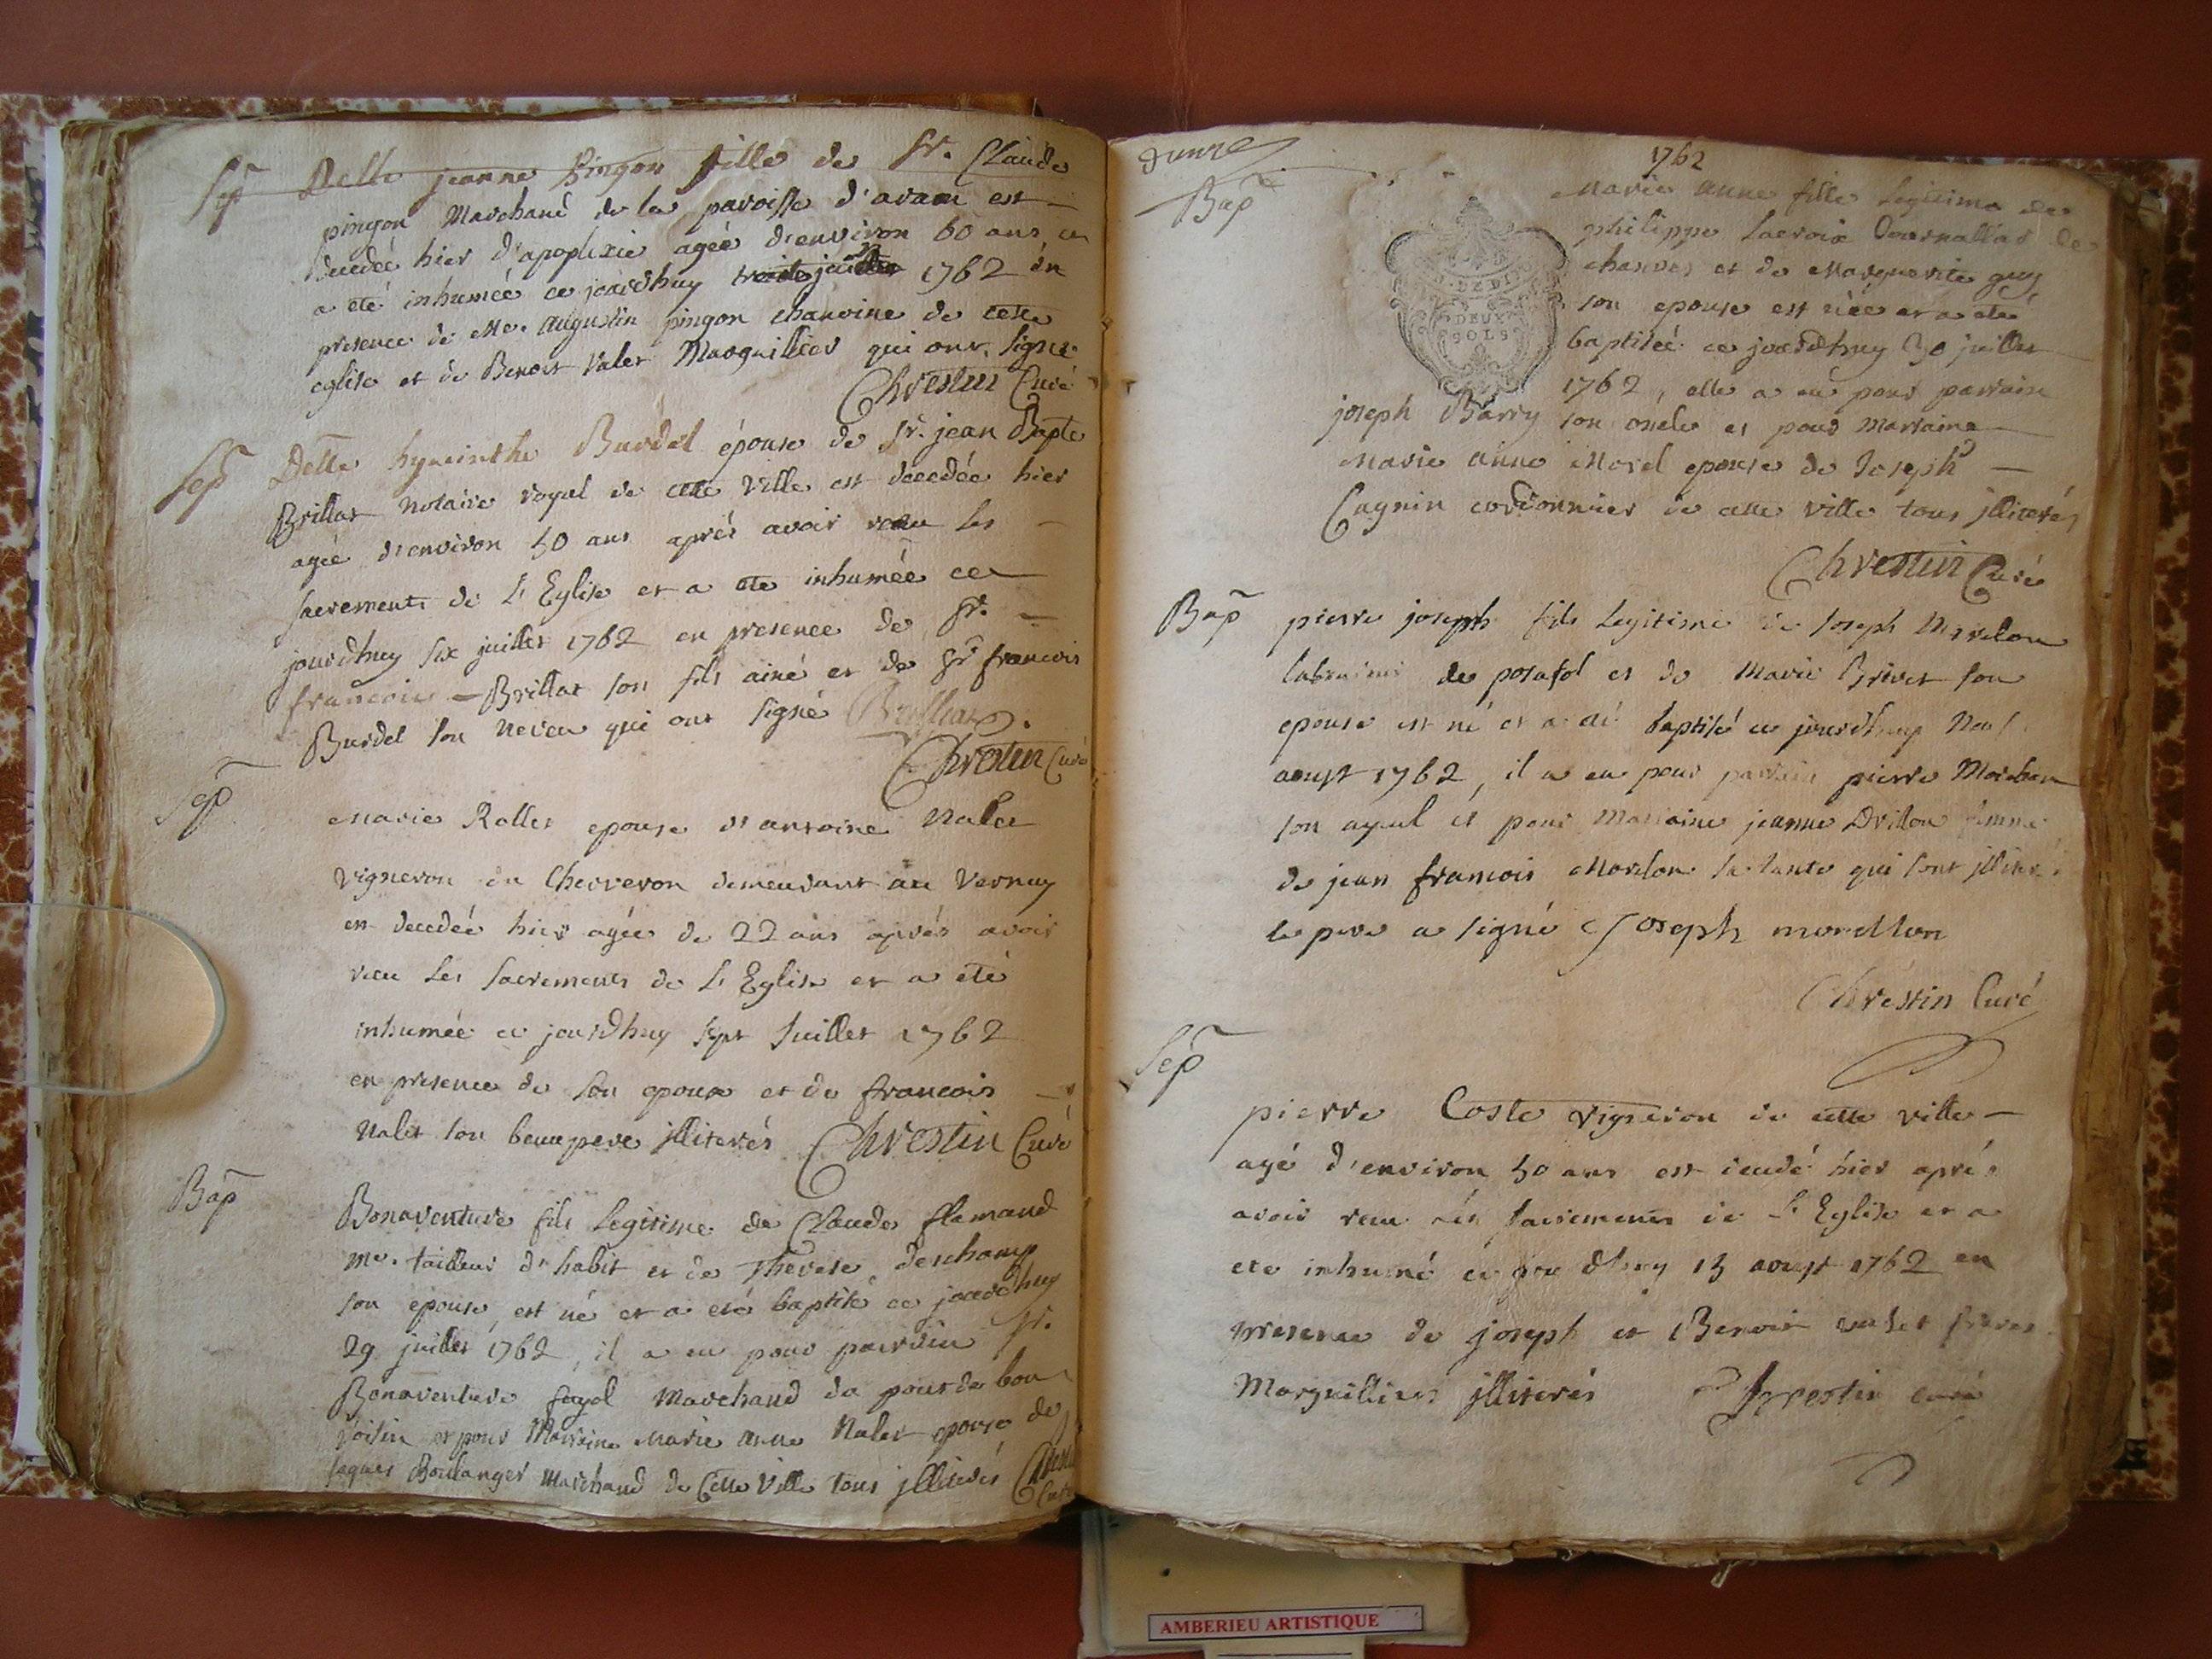 Sep
Delle jeanne Pingon fille de Sr. Claude
pingon Marchand de la paroisse d'aram est
decedée hier d'apoplexie agée d'environ 60 ans
a eté inhumée ce jourdhuy juillet 1762 en
presence de Me. Augustin pingon chanoine de cette
eglise et de Benoit Valet Marguillier qui ont signé
Chrestin Curé
Sep
Delle hyacinthe Burdel épouse de Sr. jean Bapte
Brillat notaire royal de cette ville est decedée hier
agée d'environ 50 ans aprés avoir recu les
sacrements de L'Eglise et a eté inhumée ce
jourdhuy six juillet 1762 en presence de Sr.
francois Brillat son fils ainé et de Sr francois
Burdel son neveu qui ont signé Brillat
Chrestin Curé
Sep
Marie Rollet epouse d'antoine Nalet
vigneron du Cherveron demeurant au Vernay
est decedée hier agée de 22 ans aprés avoir
recu Les sacrements de L'Eglise et a eté
inhumée ce jourdhuy sept Juillet 1762
en presence de son epoux et de francois
Nalet son beaupere illiterés Chrestin Curé
Bap
Bonaventure fils Legitime de Claude flamand
Me. tailleur d'habit et de Therese deschamp
son epouse, est né et a eté baptisé ce jourdhuy
29 juillet 1762, il a eu pour parrain Sr.
Bonaventure fayol Marchand du pont de bon
voisin et pour Marraine Marie Anne Nalet epouse de
Jaques Boulanger Marchand de Cette Ville tous illiterés Chrestin
Curé
1762
Bap
DEUX
SOLS
Marie Anne fille Legitime de
philippe Lacroix Journallier de
chanves et de Marguerite guy
son epouse est née et a eté
baptisée ce jourdhuy 30 juillet
1762, elle a eu pour parrain
joseph Barry son oncle et pour Marraine
Marie Anne Morel epouse de Joseph
Cagnin cordonnier de cette ville tous illiterés
Chrestin Curé
Bap
pierre joseph fils Legitime de Joseph Morelon
laboureur de posafol et de Marie Grivet son
epouse est né et a eté baptisé ce jourdhuy Neuf
aoust 1762, il a eu pour parrain pierre Morelon
son ayeul et pour Marraine jeanne Drillon femme
de jean francois Morelon sa tante qui sont illiterés
le pere a signé Joseph morellon
Chrestin Curé
Sep
pierre Coste vigneron de cette ville
agé d'environ 50 ans est decedé hier aprés
avoir recu Les sacrements de L'Eglise et a
eté inhumé ce jourdhuy 13 aoust 1762 en
presence de joseph et Benoit valet freres
Marguilliers illiterés Chrestin curé
AMBERIEU ARTISTIQUE